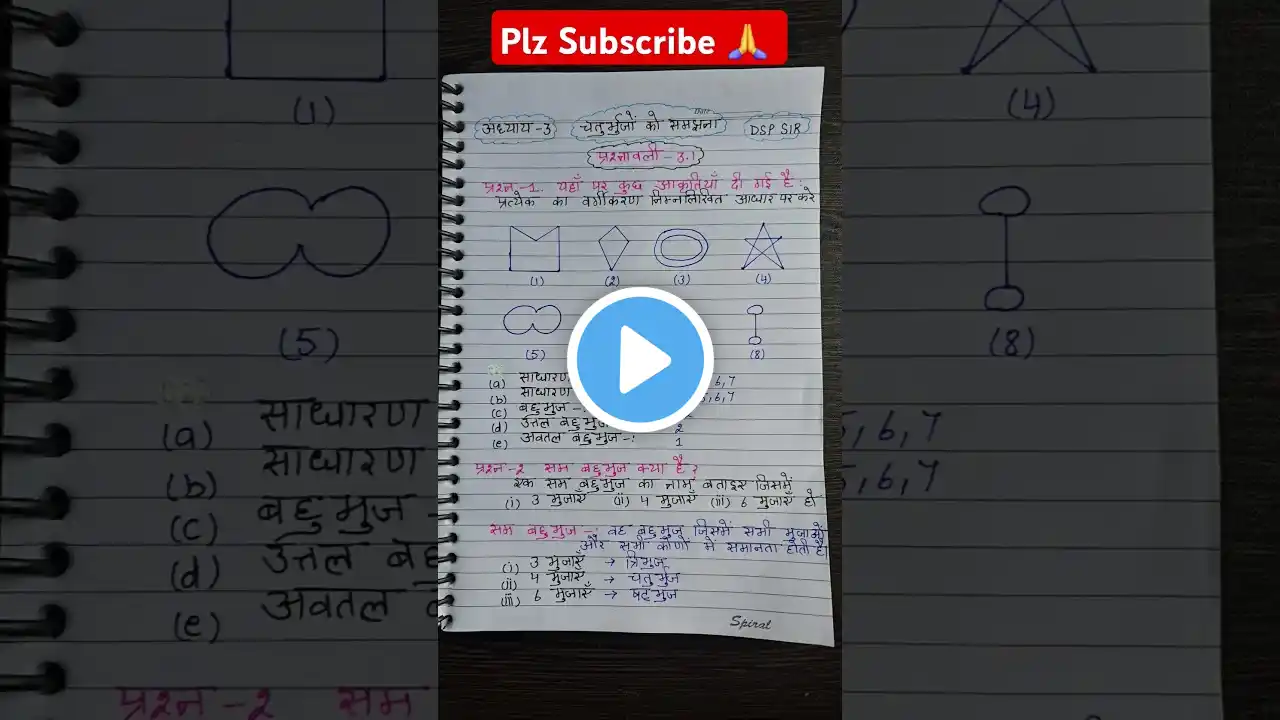 Plz Subscribe 🙏
अध्याय-3 चतुर्भुजों को समझना DSP SIR
प्रश्नावली-3.1
प्रश्न-1. यहाँ पर कुछ आकृतियाँ दी गई है :
प्रत्येक का वर्गीकरण निम्नलिखित आधार पर करे
(1) (2) (3) (4)
(5) (8)
(a) साधारण 6,7
(b) साधारण 6,7
(c) बहुभुज -:
(d) उत्तल बहुभुज 2
(e) अवतल बहुभुज -: 1
प्रश्न-2 सम बहुभुज क्या है?
एक सम बहुभुज का नाम बताइए जिसमें
(i) 3 भुजाएँ (ii) 4 भुजाएँ (iii) 6 भुजाएँ हो
सम बहुभुज -: वह बहुभुज जिसमें सभी भुजाओं
और सभी कोणों में समानता होती है।
(i) 3 भुजाएँ → त्रिभुज
(ii) 4 भुजाएँ → चतुर्भुज
(iii) 6 भुजाएँ → षट्भुज
Spiral
(1)
(5)
(a) साधारण
(b) साधारण
(c) बहुभुज -
(d) उत्तल बहु
(e) अवतल
प्रश्न-2 सम
(4)
(8)
6,7
6,7